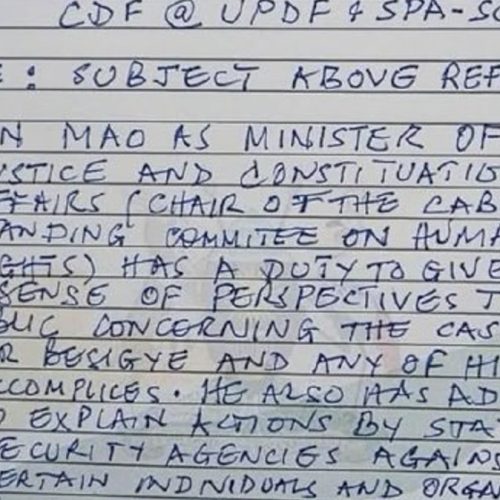 CDF @ UPDF & SPA-SO
E: SUBJECT ABOVE REF
N MAO AS MINISTER OF
STICE AND CONSTITUATIO
FAIRS (CHAIR OF THE CAB
ANDING COMMITEE ON HUMA
GHTS) HAS A DUTY TO GIVE
SENSE OF PERSPECTIVES T
BLIC CONCERNING THE CAS
R BESIGYE AND ANY OF HI
CCOMPLICES. HE ALSO HAS A D
O EXPLAIN ACTIONS BY STA
ECURITY AGENCIES AGAINS
ERTAIN INDIVIDUALS AND ORGA